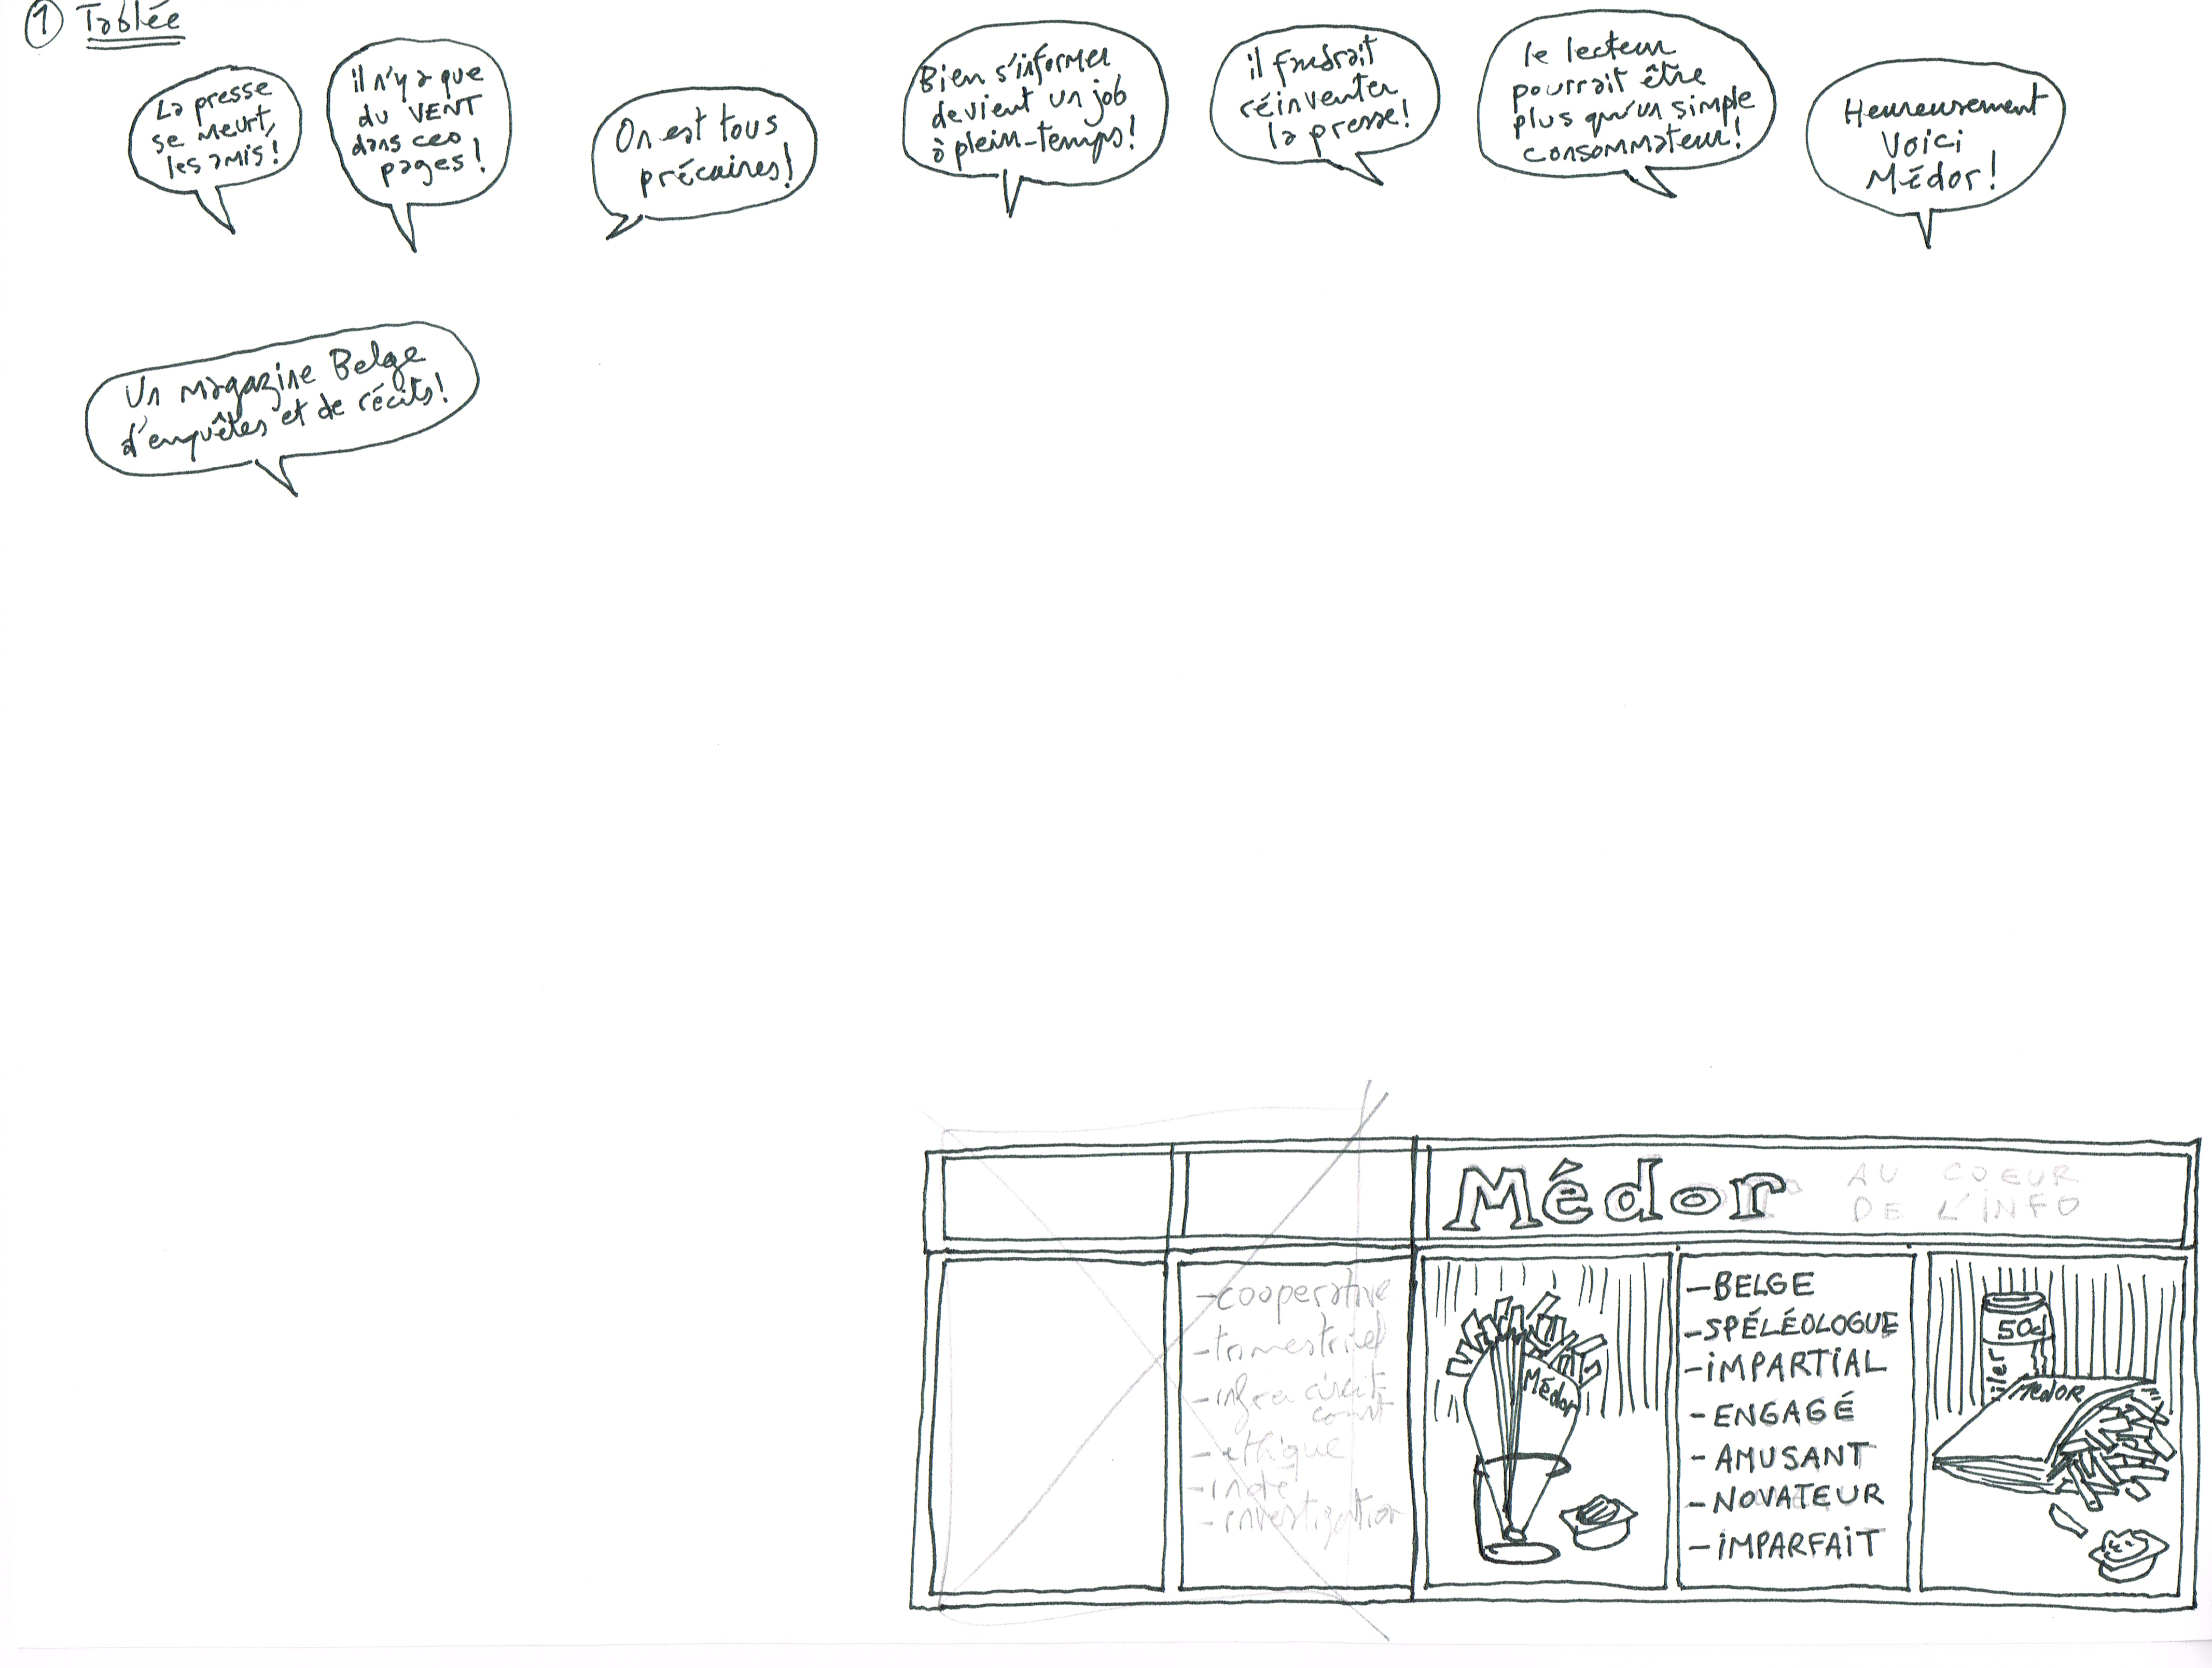 1 Tablée
La presse
se meurt,
les amis!
il n'y a que
du VENT
dans ces
pages!
On est tous
précaires!
Bien s'informer
devient un job
à plein-temps!
il faudrait
réinventer
la presse!
le lecteur
pourrait être
plus qu'un simple
consommateur!
Heureusement
Voici
Médor!
Un magazine Belge
d'enquêtes et de récits!
Médor
AU COEUR
DE L'INFO
-cooperative
-trimestriel
-infra circuit
court
-ethique
-investigation
Médor
-BELGE
-SPÉLÉOLOGUE
-IMPARTIAL
-ENGAGÉ
-AMUSANT
-NOVATEUR
-IMPARFAIT
50cl
MEDOR